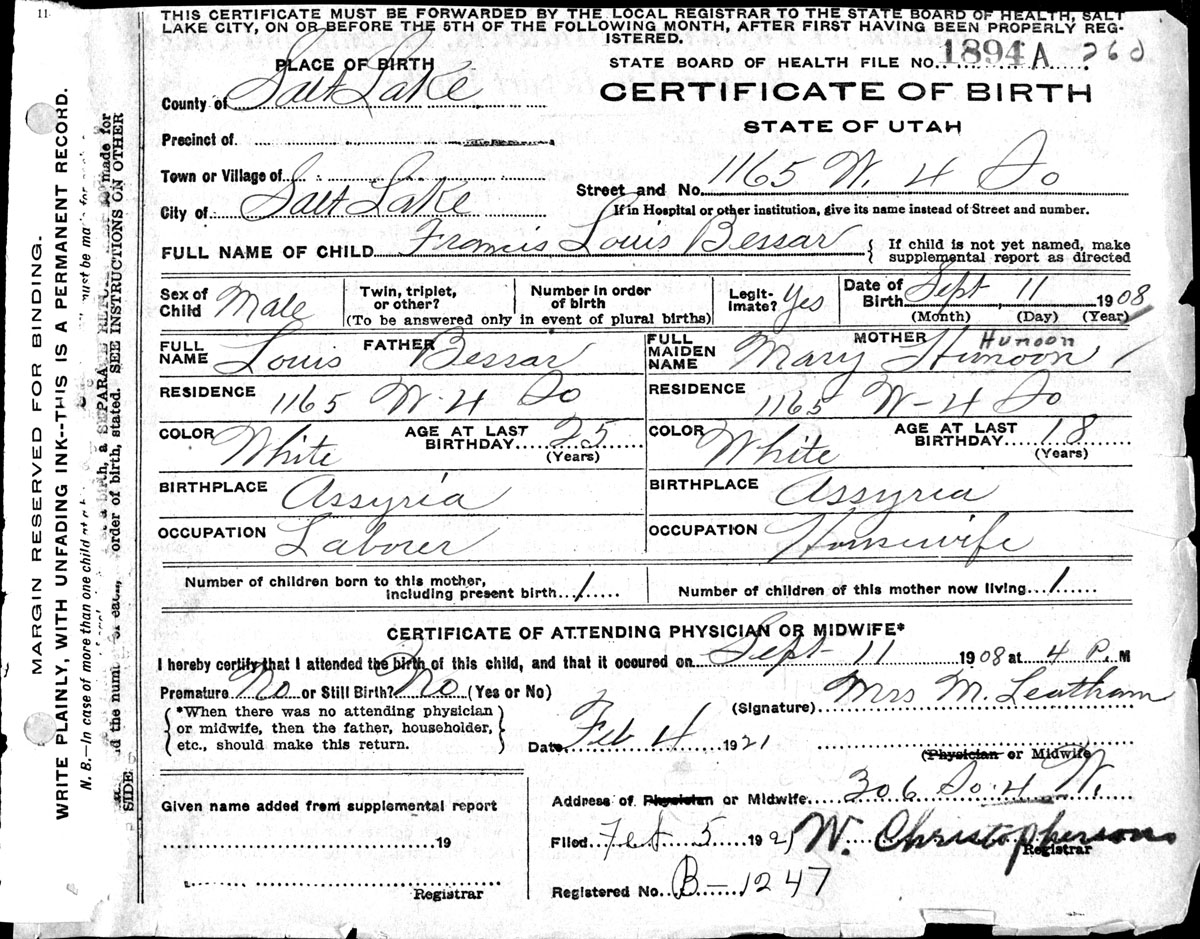 11
THIS CERTIFICATE MUST BE FORWARDED BY THE LOCAL REGISTRAR TO THE STATE BOARD OF HEALTH, SALT
LAKE CITY, ON OR BEFORE THE 5TH OF THE FOLLOWING MONTH, AFTER FIRST HAVING BEEN PROPERLY REG-
ISTERED.
PLACE OF BIRTH
STATE BOARD OF HEALTH FILE NO. 1894 A 260
County of Salt Lake
CERTIFICATE OF BIRTH
Precinct of
STATE OF UTAH
Town or Village of
Street and No. 1165 W. 4 So
City of Salt Lake
If in Hospital or other institution, give its name instead of Street and number.
FULL NAME OF CHILD Francis Louis Bessar
If child is not yet named, make
supplemental report as directed
Sex of Child Male
Twin, triplet, or other?
Number in order of birth
(To be answered only in event of plural births)
Legit-imate? Yes
Date of Birth Sept 11 1908
(Month) (Day) (Year)
FATHER
FULL NAME Louis Bessar
MOTHER
FULL MAIDEN NAME Mary Hunoon
HUNOON
RESIDENCE 1165 W. 4 So
RESIDENCE 1165 W-4 So
COLOR White
AGE AT LAST BIRTHDAY 25 (Years)
COLOR White
AGE AT LAST BIRTHDAY 18 (Years)
BIRTHPLACE Assyria
BIRTHPLACE Assyria
OCCUPATION Laborer
OCCUPATION Housewife
Number of children born to this mother,
including present birth 1
Number of children of this mother now living 1
CERTIFICATE OF ATTENDING PHYSICIAN OR MIDWIFE*
I hereby certify that I attended the birth of this child, and that it occured on Sept 11 1908 at 4 P. M
Premature No or Still Birth? No (Yes or No)
(Signature) Mrs M. Leatham
*When there was no attending physician
or midwife, then the father, householder,
etc., should make this return.
Date Feb 4 1921
(Physician or Midwife
Address of Physician or Midwife 306 So. 4 W.
Given name added from supplemental report
19
Registrar
Filed Feb 5 1921 W. Christopherson
Registrar
Registered No. B-1247
MARGIN RESERVED FOR BINDING.
WRITE PLAINLY, WITH UNFADING INK--THIS IS A PERMANENT RECORD.
N. B.—In case of more than one child at
must be ma
birth, a SEPARATE RETURN
made for
order of birth, stated. SEE INSTRUCTIONS ON OTHER
SIDE.